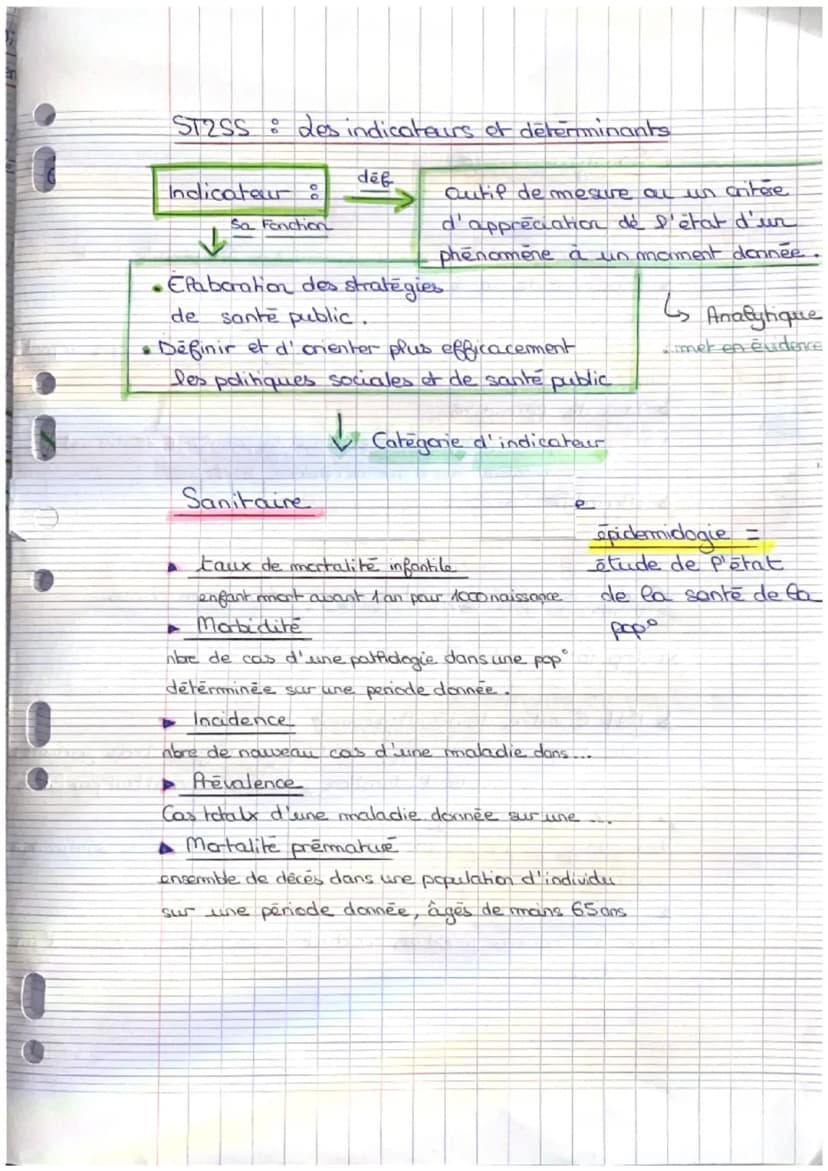 ST2SS : les indicateurs et détérminants
Indicateur :
déf
outil de mesure ou un critère
d'appréciation de l'état d'un
phénomène à un moment donnée.
Sa Fonction
• Élaboration des stratégies
de santé public.
• Définir et d'orienter plus efficacement
les politiques sociales et de santé public
↳ Analytique
. met en évidence
↓ Catégorie d'indicateur
Sanitaire
e
épidemiologie =
étude de l'état
de la santé de la
pop°
▸ taux de mortalité infantile
enfant mort avant 1 an pour 1000 naissance
▸ Morbidité
nbre de cas d'une pathologie dans une pop°
détérminée sur une periode donnée.
▸ Incidence
nbre de nouveau cas d'une maladie dans...
▸ Prévalence
Cas totalx d'une maladie donnée sur une ...
▸ Mortalité prématué
ensemble de décés dans une population d'individu
sur une période donnée, âgés de moins 65 ans